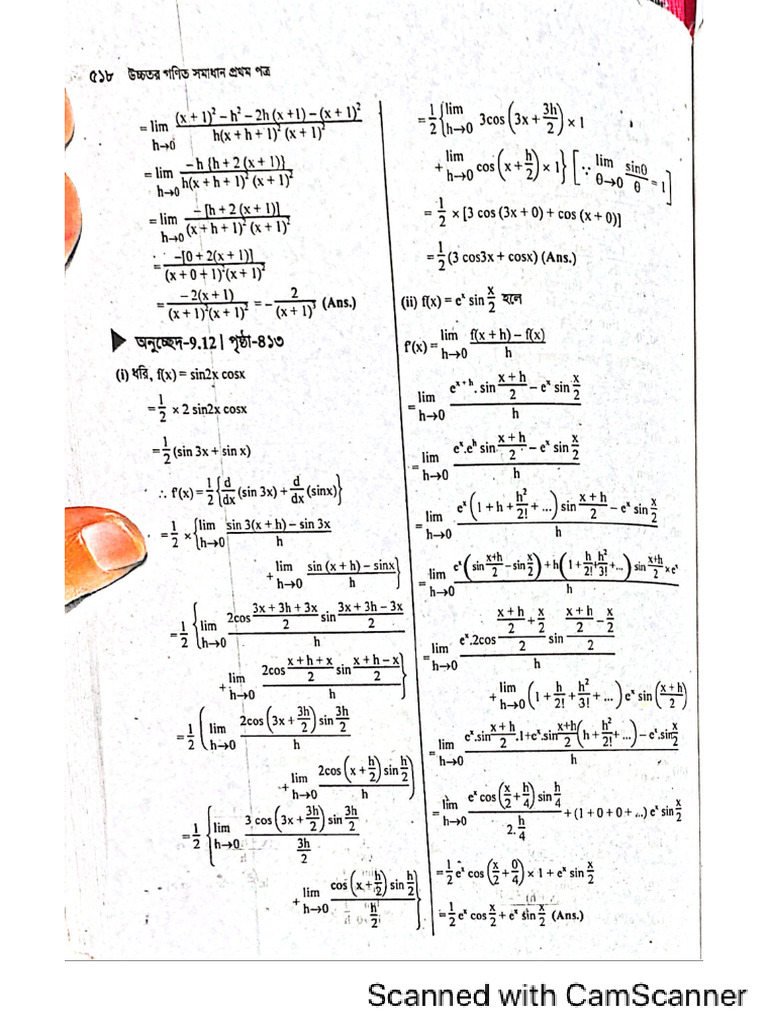 ৫১৮ উচ্চতর গণিত সমাধান প্রথম পত্র
= lim h→0 ((x + 1)² – h² – 2h (x +1) – (x + 1)²) / (h(x + h + 1)² (x + 1)²)
= lim h→0 (– h {h + 2 (x + 1)}) / (h(x + h + 1)² (x + 1)²)
= lim h→0 (– [h + 2 (x + 1)]) / ((x + h + 1)² (x + 1)²)
= (–[0 + 2(x + 1)]) / ((x + 0 + 1)²(x + 1)²)
= (– 2(x + 1)) / ((x + 1)²(x + 1)²) = – 2 / (x + 1)³ (Ans.)
▶ অনুচ্ছেদ-9.12 | পৃষ্ঠা-৪১৩
(i) ধরি, f(x) = sin2x cosx
= 1/2 × 2 sin2x cosx
= 1/2 (sin 3x + sin x)
∴ f'(x) = 1/2 {d/dx (sin 3x) + d/dx (sinx)}
= 1/2 × {lim h→0 (sin 3(x + h) – sin 3x) / h
+ lim h→0 (sin (x + h) – sinx) / h}
= 1/2 {lim h→0 (2cos (3x + 3h + 3x)/2 sin (3x + 3h – 3x)/2) / h
+ lim h→0 (2cos (x + h + x)/2 sin (x + h – x)/2) / h}
= 1/2 ( lim h→0 (2cos (3x + 3h/2) sin 3h/2) / h
+ lim h→0 (2cos (x + h/2) sin h/2) / h )
= 1/2 { lim h→0 (3 cos (3x + 3h/2) sin 3h/2) / (3h/2)
+ lim h→0 (cos (x + h/2) sin h/2) / (h/2) }
= 1/2 {lim h→0 3cos (3x + 3h/2) × 1
+ lim h→0 cos (x + h/2) × 1} [∵ lim θ→0 sinθ/θ = 1]
= 1/2 × [3 cos (3x + 0) + cos (x + 0)]
= 1/2 (3 cos3x + cosx) (Ans.)
(ii) f(x) = eˣ sin x/2 হলে
f'(x) = lim h→0 (f(x + h) – f(x)) / h
= lim h→0 (eˣ⁺ʰ. sin (x + h)/2 – eˣ sin x/2) / h
= lim h→0 (eˣ.eʰ sin (x + h)/2 – eˣ sin x/2) / h
= lim h→0 (eˣ (1 + h + h²/2! + ...) sin (x + h)/2 – eˣ sin x/2) / h
= lim h→0 (eˣ (sin (x+h)/2 – sin x/2) + h(1 + h/2! + h²/3! + ...) sin (x+h)/2 × eˣ) / h
= lim h→0 (eˣ.2cos ((x + h)/2 + x/2)/2 sin ((x + h)/2 – x/2)/2) / h
+ lim h→0 (1 + h/2! + h²/3! + ...) eˣ sin ((x + h)/2)
= lim h→0 (eˣ.sin (x + h)/2 .1+eˣ.sin (x+h)/2 (h + h²/2! + ...) – eˣ.sin x/2) / h
= lim h→0 (eˣ cos (x/2 + h/4) sin h/4) / (2. h/4) + (1 + 0 + 0 + ...) eˣ sin x/2
= 1/2 eˣ cos (x/2 + 0/4) × 1 + eˣ sin x/2
= 1/2 eˣ cos x/2 + eˣ sin x/2 (Ans.)
Scanned with CamScanner